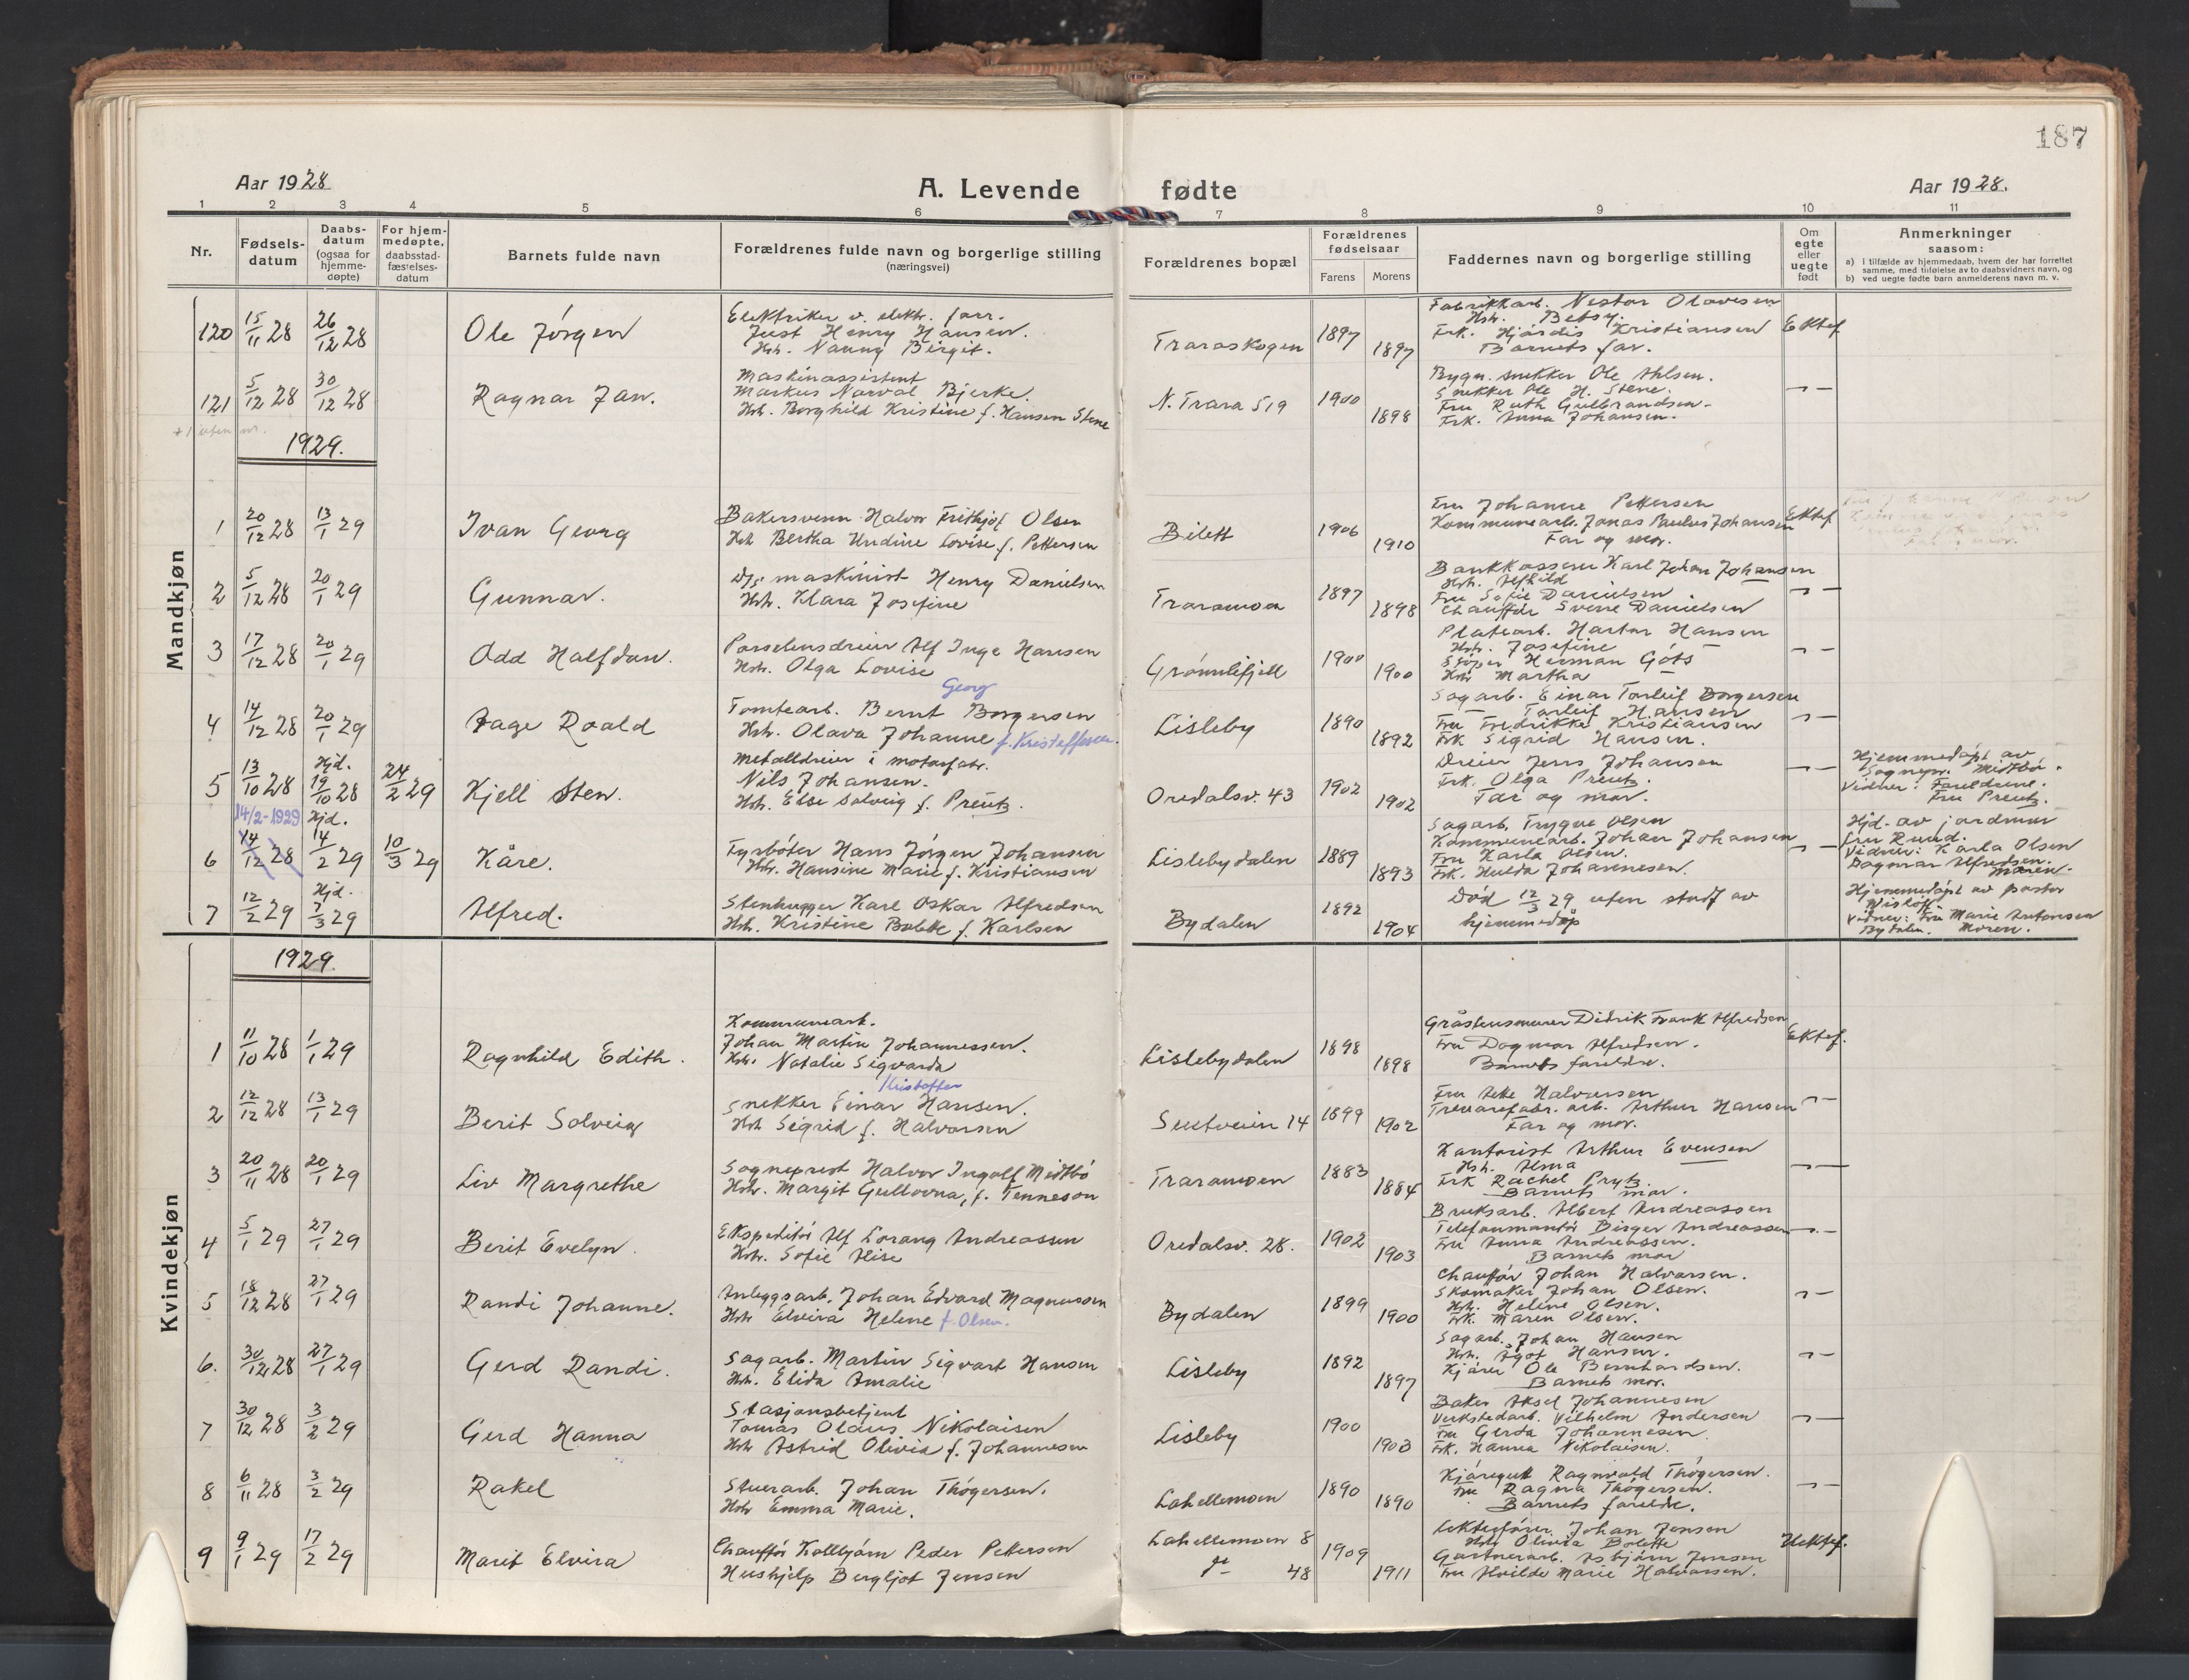 187
Aar 1928
A. Levende fødte
Aar 1928.
1 2 3 4 5 6 7 8 9 10 11
Nr.
Fødsels-
datum
Daabs-
datum
(ogsaa for
hjemme-
døpte)
For hjem-
medøpte,
daabsstad-
fæstelses-
datum
Barnets fulde navn
Forældrenes fulde navn og borgerlige stilling
(næringsvei)
Forældrenes bopæl
Forældrenes
fødselsaar
Farens Morens
Faddernes navn og borgerlige stilling
Om
egte
eller
uegte
født
Anmerkninger
saasom:
a) i tilfælde av hjemmedaab, hvem der har forrettet
samme, med tilføielse av to daabsvidners navn, og
b) ved uegte fødte barn anmelderens navn m. v.
Mandkjøn
120 15/11 28 26/12 28
Ole Jörgen
Elektriker v. elektr. forr.
Just Henry Hansen.
Hstr. Nanny Birgit.
Traraskogen 1897 1897
Fabrikkarb. Nestor Olavesen
Hstr. Betsy.
Frk. Hjördis Kristiansen
Barnets far.
Ektef.
121 5/12 28 30/12 28
Ragnar Jan.
Maskinassistent
Markus Narval Bjerke.
Hstr. Borghild Kristine f. Hansen Stene
N. Trara 519 1900 1898
Bygn. snekker Ole Ahlsen.
Snekker Ole H. Stene.
Fru Ruth Gulbrandsen.
Frk. Anna Johansen.
+ 1 uten nr.
1929.
1 20/12 28 13/1 29
Ivan Georg
Bakersvenn Halvor Frithjof Olsen
Hstr Bertha Undine Lovise f. Pettersen
Bilett 1906 1910
Fru Johanne Pettersen
Kommunearb. Jonas Paulus Johansen
Far og mor.
Ektef.
2 5/12 28 20/1 29
Gunnar.
D/S maskinist Henry Danielsen
Hstr. Klara Josefine
Traramoen 1897 1898
Bankkasserer Karl Johan Johansen
Hstr. Alfhild
Fru Sofie Danielsen
Chaufför Sverre Danielsen
3 17/12 28 20/1 29
Odd Halfdan.
Porselensdreier Alf Inge Hansen
Hstr. Olga Lovise
Grönnlifjell 1900 1900
Platearb. Hartor Hansen
Hstr. Josefine
Herman Göts
Hstr Martha
4 14/12 28 20/1 29
Aage Roald
Georg
Tomtearb. Bernt Borgersen
Hstr. Olava Johanne f. Kristoffersen.
Lisleby 1890 1892
Sagarb. Einar Torleif Borgersen
— Torleif Hansen
Fru Fredrikke Kristiansen
Frk Sigrid Hansen.
5 13/10 28 Hjd. 19/10 28 24/2 29
Kjell Sten.
Metalldreier i motorfabr.
Nils Johansen.
Hstr. Else Solveig f. Preutz.
Oredalsv. 43 1902 1902
Dreier Jens Johansen
Frk. Olga Preutz.
Far og mor.
Hjemmedöpt av
Sognepr. Midtbö.
Vidner: Foreldrene.
Fru Preutz.
14/2-1929
6 14/12 28 Hjd. 14/2 29 10/3 29
Kåre.
Fyrböter Hans Jörgen Johansen
Hstr. Hansine Marie f. Kristiansen
Lislebydalen 1889 1893
Sagarb. Trygve Olsen
Kommunearb. Johan Johansen
Fru Karla Olsen.
Frk. Hulda Johannesen.
Hjd. av jordmor
fru Ruud.
Vidner: Karla Olsen
Dagmar Alfredsen.
Moren.
7 12/2 29 Hjd. 7/3 29
Alfred.
Stenhugger Karl Oskar Alfredsen
Hstr. Kristine Bolette f. Karlsen
Bydalen 1892 1904
Död 12/3 29 uten stadf av
hjemmedåp
Hjemmedöpt av pastor
Wislöff
Vidner: Fru Marie Antonsen
Bydalen. Moren.
Kvindekjøn
1929.
1 11/10 28 1/1 29
Ragnhild Edith.
Kommunearb.
Johan Martin Johannessen.
Hstr. Natalie Sigvarda
Lislebydalen 1898 1898
Gråstensmurer Didrik Frank Alfredsen
Fru Dagmar Alfredsen.
Barnets foreldre.
Ektef.
2 12/12 28 13/1 29
Berit Solveig
Kristoffer
Snekker Einar Hansen.
Hstr Sigrid f. Halvorsen
14 1899 1902
Fru Halvorsen
Trevarefabr. arb. Arthur Hansen
Far og mor.
3 20/11 28 20/1 29
Liv Margrethe
Sogneprest Halvor Ingolf Midtbö
Hstr. Margit Gullovna, f. Tenneson
Traramoen 1883 1884
Kontorist Arthur Evensen
Hstr. Alma
Frk Rachel Prytz.
Barnets mor.
4 5/1 29 27/1 29
Berit Evelyn.
Ekspeditör Alf Lorang Andreassen
Hstr. Sofie Alise
Oredalsv. 28. 1902 1903
Bruksarb. Albert Andreassen
Telefonmontör Birger Andreassen
Fru Anna Andreassen.
Barnets mor
5 18/12 28 27/1 29
Randi Johanne.
Anleggsarb. Johan Edvard Magnussen
Hstr Elvira Helene f. Olsen.
Bydalen 1899 1900
Chaufför Johan Halvorsen.
Skomaker Johan Olsen.
Hstr. Helene Olsen.
Frk. Maren Olsen.
6. 30/12 28 27/1 29
Gerd Randi.
Sagarb. Martin Sigvart Hansen
Hstr. Elida Amalie
Lisleby 1892 1897
Sagarb. Johan Hansen
Hstr. Ågot Hansen.
Kjörer Ole Bernhardsen.
Barnets mor.
7 30/12 28 3/2 29
Gerd Hanna
Stasjonsbetjent
Tomas Olaus Nikolaisen
Hstr Astrid Olivia f. Johannesen
Lisleby 1900 1903
Baker Aksel Johannesen
Verkstedarb. Vilhelm Andersen
Fru Gerda Johannesen
Frk. Hanna Nikolaisen.
8 6/11 28 3/2 29
Rakel
Stuerarb. Johan Thögersen.
Hstr Emma Marie.
Lahellemoen 1890 1890
Kjöregutt Ragnvald Thögersen.
Fru Ragna Thögersen.
Barnets foreldre.
9 9/1 29 17/2 29
Marit Elvira
Chaufför Kolbjörn Peder Pettersen
Hushjelp Bergljot Jensen
Lahellemoen 8
48
1909 1911
Lekterfører Johan Jensen
Hstr Olivia Bolette
Gartnerarb. Asbjörn Jensen
Fru Alvilde Marie Halvorsen.
Uektef.